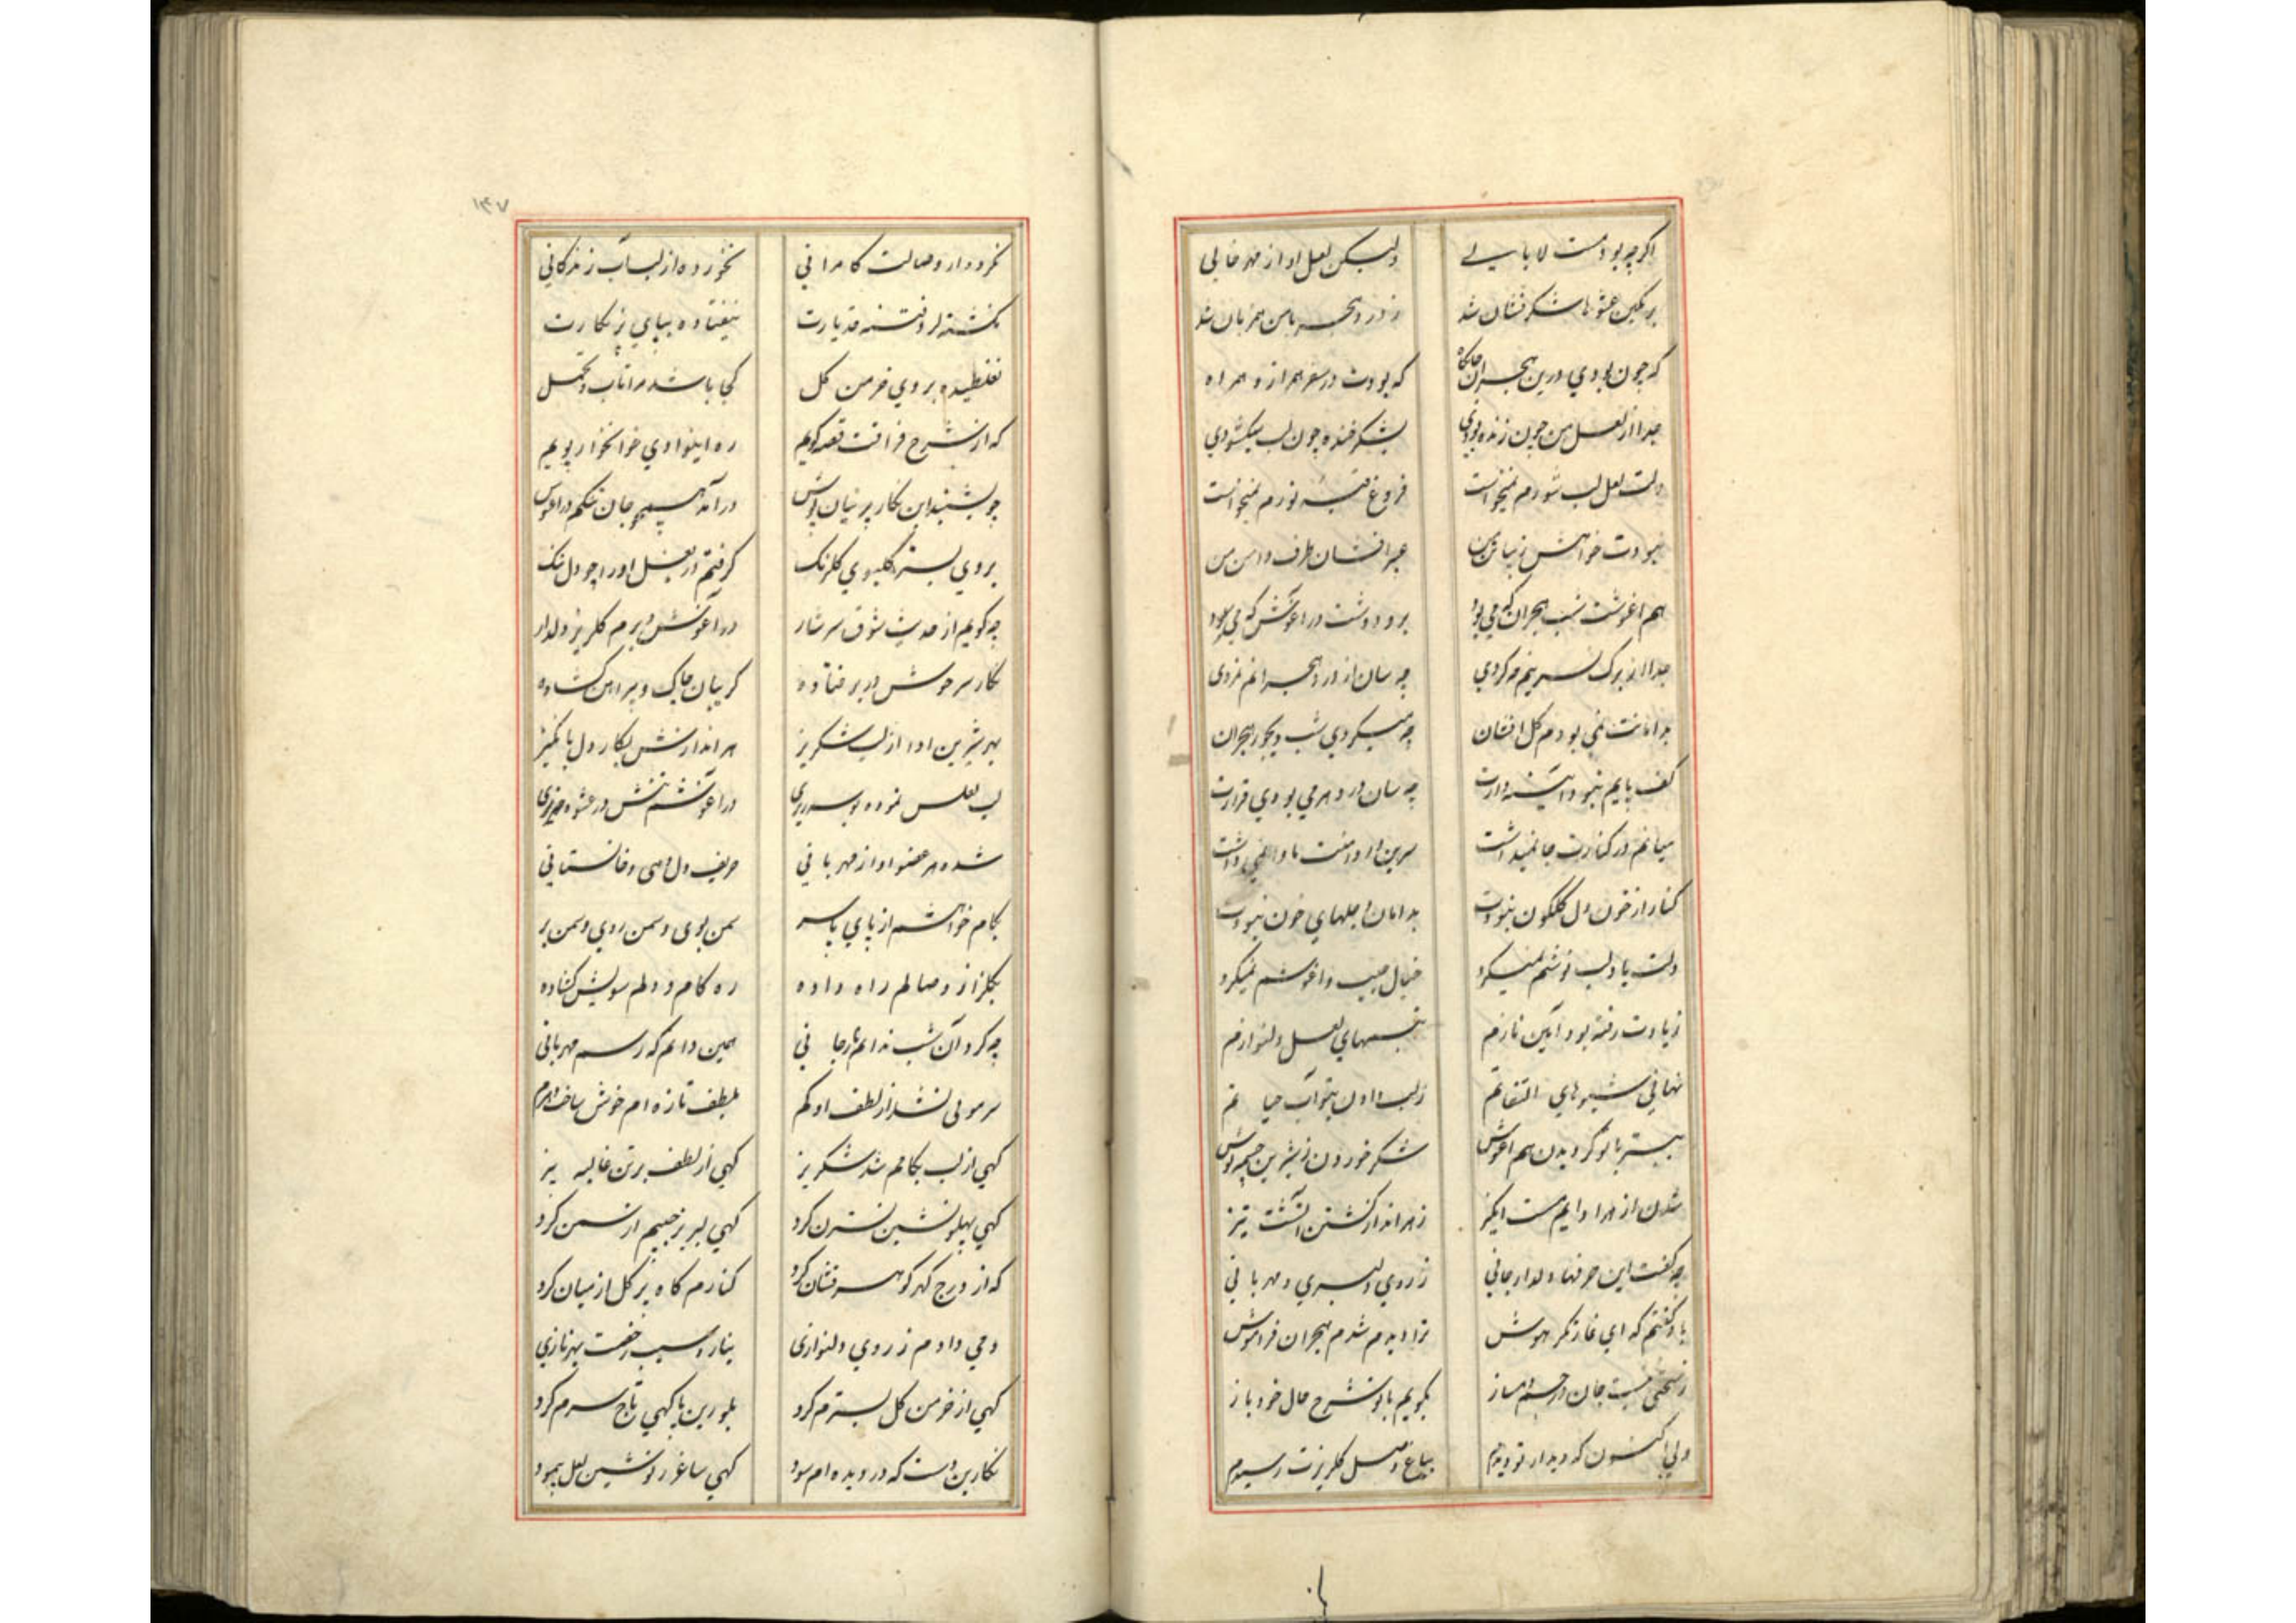 اگرچه بود مست لا بالی ولیکن لعل او از مهر خالی
شکر فشان شد ز درد هجر با من همزبان شد
که چون بودی درین هجران جانکاه که بودت در سفر همراز و همراه
جدا از لعل من چون زنده بودی بشکر خنده چون لب میکشودی
دلت لعل لب شورم نمیخواست فروغ نورم نمیخواست
نبودت خواهش عبر افشان طرف دامن من
هم اغوشت شب هجران که می بود برو دوشت در اغوش که می سود
جدا از برگ نسرینم چه کردی چه سان از درد هجرانم نمردی
بدامانت نمی بودم گل افشان چه میکردی شب دیجور هجران
کف پایم نبود چه سان در دهر می بودی قرارت
میانم در کنارت جا نمیداشت سرین
کنار از خون دل گلگون نبودت بدامان دجلهای خون نبودت
دلت یاد لب نوشم نمیکرد خیال جیب و اغوشم نمیکرد
ز یادت رفته بود آیین نازم تبسمهای لعل دلنوازم
نهانی شیوهای التفاتم ز لب دادن بتو آب حیاتم
ببستر با تو گردیدن هم اغوش شکر خوردن ز شیرین چشمه نوش
شدن از هر ادایم مست انگیز ز هر انداز گشتن آتشت تیز
چه گفت این حرفها دلدار جانی ز روی دلبری و مهربانی
باو گفتم که ای غارتگر هوش ترا دیدم شدم هجران فراموش
جان در جسم بگویم با تو شرح حال خود باز
ولی اکنون که دیدار تو دیدم بباغ وصل گلریزت رسیدم
۱۴۷
نکرده از وصالت کامرانی نخورده از لبت آب زندگانی
نگشته نیفتاده بپای
نغلطیده بروی خرمن گل کجا باشد مرا تاب و تحمل
که از شرح فراقت قصه گویم ره این وادی خونخوار پویم
چو بشنید این نگار پرنیان پوش درآمد همچو جان تنگم در اغوش
بروی بستر گلبوی گلرنگ گرفتم در بغل او را چو دل تنگ
چه گویم از حدیث شوق سرشار در اغوش و برم گلریز دلدار
نگار سرخوش در بر فتاده گریبان چاک و پیراهن گشاده
بهر شیرین ادا از لب شکر ریز هر اندازش بکار دل
لب لعلس در اغوشم تنش در عشوه
شده هر عضو او از مهربانی حریف دل
بکام خواهشم از پای تا سر سمن بوی و سمن روی و سمن بر
بگلزار وصالم راه داده ره کام دلم سویش گشاده
چه کرد آن شب ندانم یار جانی همین دانم که رسم مهربانی
سر موئی نشد از لطف او کم بلطف تازه ام خوش ساخت هر دم
گهی از لب بکامم شد شکر ریز گهی از لطف بر تن غالیه بیز
گهی پهلو نشین نسترن کرد گهی لبریز جیبم از سمن کرد
که از درج گهر گوهر فشان کرد کنارم گاه پر گل از میان کرد
دمی دادم ز روی دلنوازی
گهی از خرمن گل بسترم کرد بلورین پا گهی تاج سرم کرد
نگارین دست که در دیده ام سود گهی ساغر ز نوشین لعل پیمود